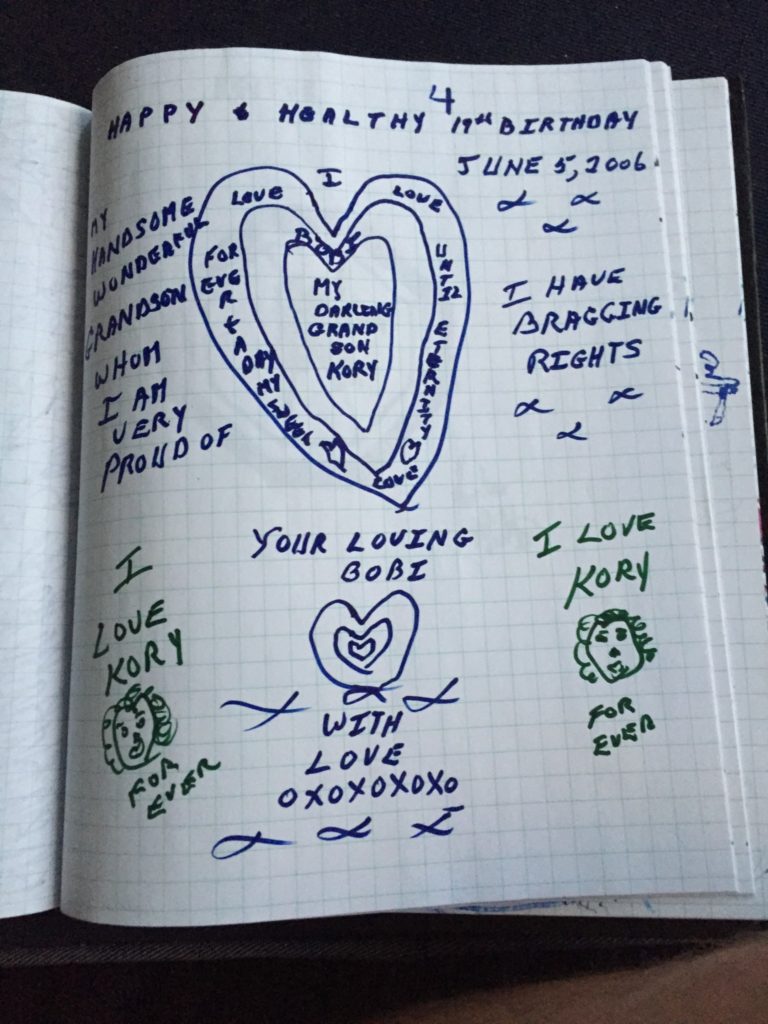 4
HAPPY & HEALTHY 19th BIRTHDAY
JUNE 5, 2006
MY
HANDSOME
WONDERFUL
GRANDSON
WHOM
I AM
VERY
PROUD OF
I
LOVE
LOVE
FOR
EVE
R & A
DAY
MY
UNTIL ETERNITY
LOVE
BOBI
MY
DARLING
GRAND
SON
KORY
I HAVE
BRAGGING
RIGHTS
YOUR LOVING
BOBI
I
LOVE
KORY
FOR
EVER
I LOVE
KORY
FOR
EVER
WITH
LOVE
OXOXOXOXO